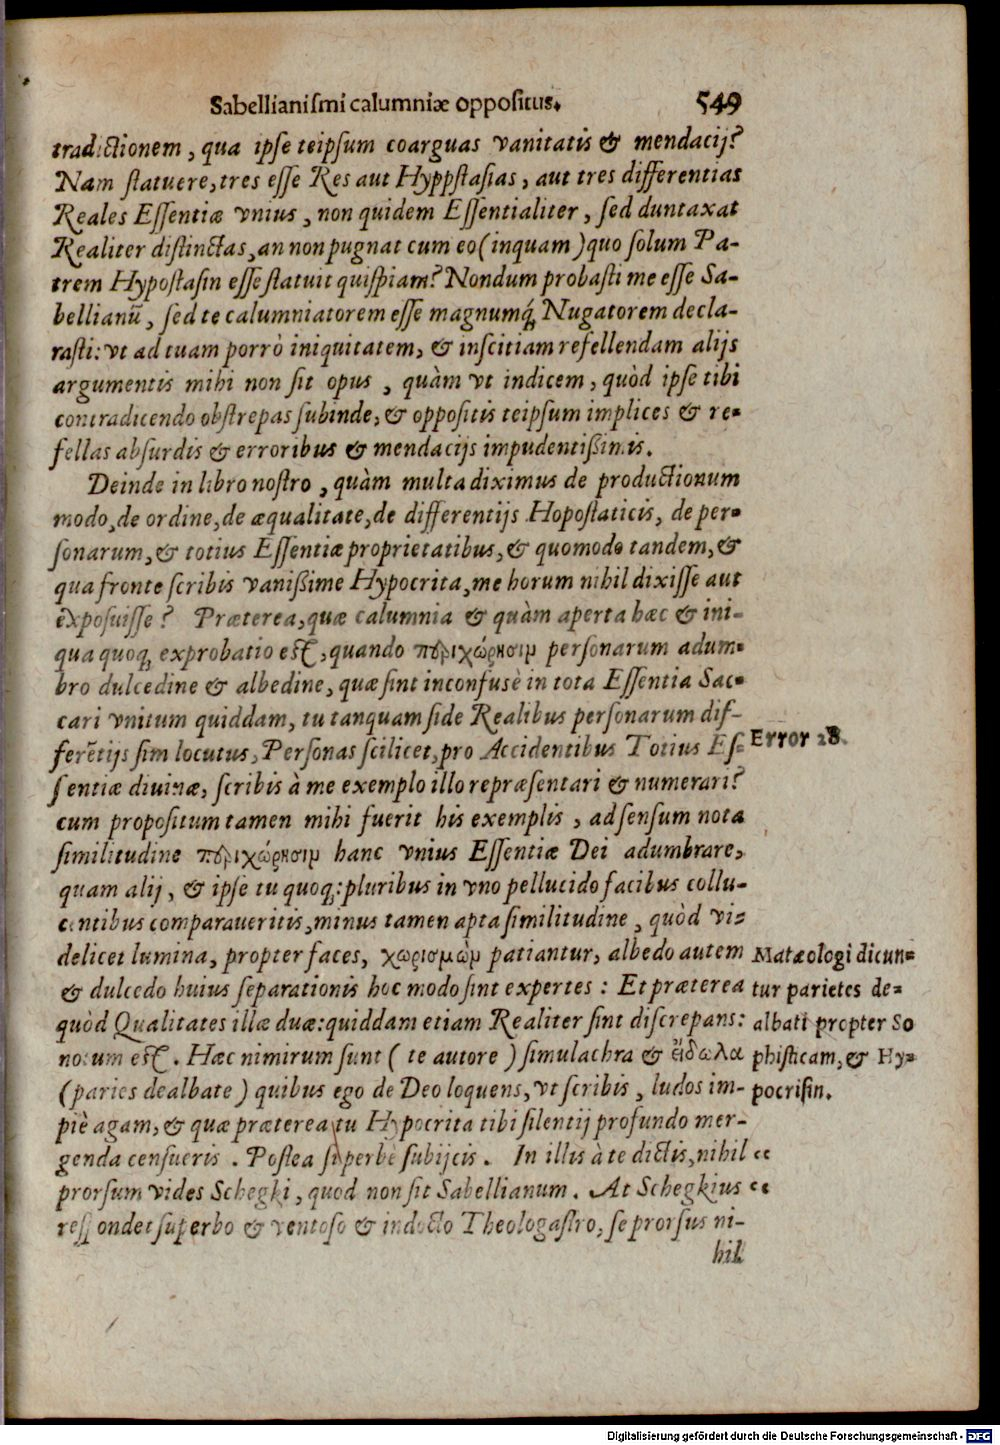 Sabellianiſmi calumniæ oppoſitus. 549
tradictionem, qua ipſe teipſum coarguas vanitatis & mendacij?
Nam ſtatuere, tres eſſe Res aut Hyppſtaſias, aut tres differentias
Reales Eſſentiæ vnius, non quidem Eſſentialiter, ſed duntaxat
Realiter diſtinctas, an non pugnat cum eo (inquam) quo ſolum Pa-
trem Hypoſtaſin eſſe ſtatuit quiſpiam? Nondum probaſti me eſſe Sa-
bellianũ, ſed te calumniatorem eſſe magnumq́; Nugatorem decla-
raſti: vt ad tuam porrò iniquitatem, & inſcitiam refellendam alijs
argumentis mihi non ſit opus, quàm vt indicem, quòd ipſe tibi
contradicendo obſtrepas ſubinde, & oppoſitis teipſum implices & re-
fellas abſurdis & erroribus & mendacijs impudentißimis.
Deinde in libro noſtro, quàm multa diximus de productionum
modo, de ordine, de æqualitate, de differentijs Hopoſtaticis, de per-
ſonarum, & totius Eſſentiæ proprietatibus, & quomodo tandem, &
qua fronte ſcribis vanißime Hypocrita, me horum nihil dixiſſe aut
expoſuiſſe? Præterea, quæ calumnia & quàm aperta hæc & ini-
qua quoq; exprobatio eſt, quando πϵριχώρησιμ perſonarum adum-
bro dulcedine & albedine, quæ ſint inconfuſè in tota Eſſentia Sac-
cari vnitum quiddam, tu tanquam ſide Realibus perſonarum dif-
ferẽtijs ſim locutus, Perſonas ſcilicet, pro Accidentibus Totius Eſ-
Error 28.
ſentiæ diuinæ, ſcribis à me exemplo illo repræſentari & numerari?
cum propoſitum tamen mihi fuerit his exemplis, ad ſenſum nota
ſimilitudine πϵριχώρησιμ hanc vnius Eſſentiæ Dei adumbrare,
quam alij, & ipſe tu quoq;: pluribus in vno pellucido facibus collu-
centibus comparaueritis, minus tamen apta ſimilitudine, quòd vi-
delicet lumina, propter faces, χωρισμὼμ patiantur, albedo autem
& dulcedo huius ſeparationis hoc modo ſint expertes: Et præterea
quòd Qualitates illæ duæ: quiddam etiam Realiter ſint diſcrepans:
notum eſt. Hæc nimirum ſunt (te autore) ſimulachra & ἔιδωλα
(paries dealbate) quibus ego de Deo loquens, vt ſcribis, ludos im-
Matæologi dicun-
tur parietes de-
albati propter So
phiſticam, & Hy-
pocriſin.
piè agam, & quæ præterea tu Hypocrita tibi ſilentij profundo mer-
genda cenſueris. Poſtea ſuperbè ſubijcis. In illis à te dictis, nihil "
prorſum vides Schegki, quod non ſit Sabellianum. At Schegkius "
reſpondet ſuperbo & ventoſo & indocto Theologaſtro, ſe prorſus ni-
hil
Digitalisierung gefördert durch die Deutsche Forschungsgemeinschaft - DFG